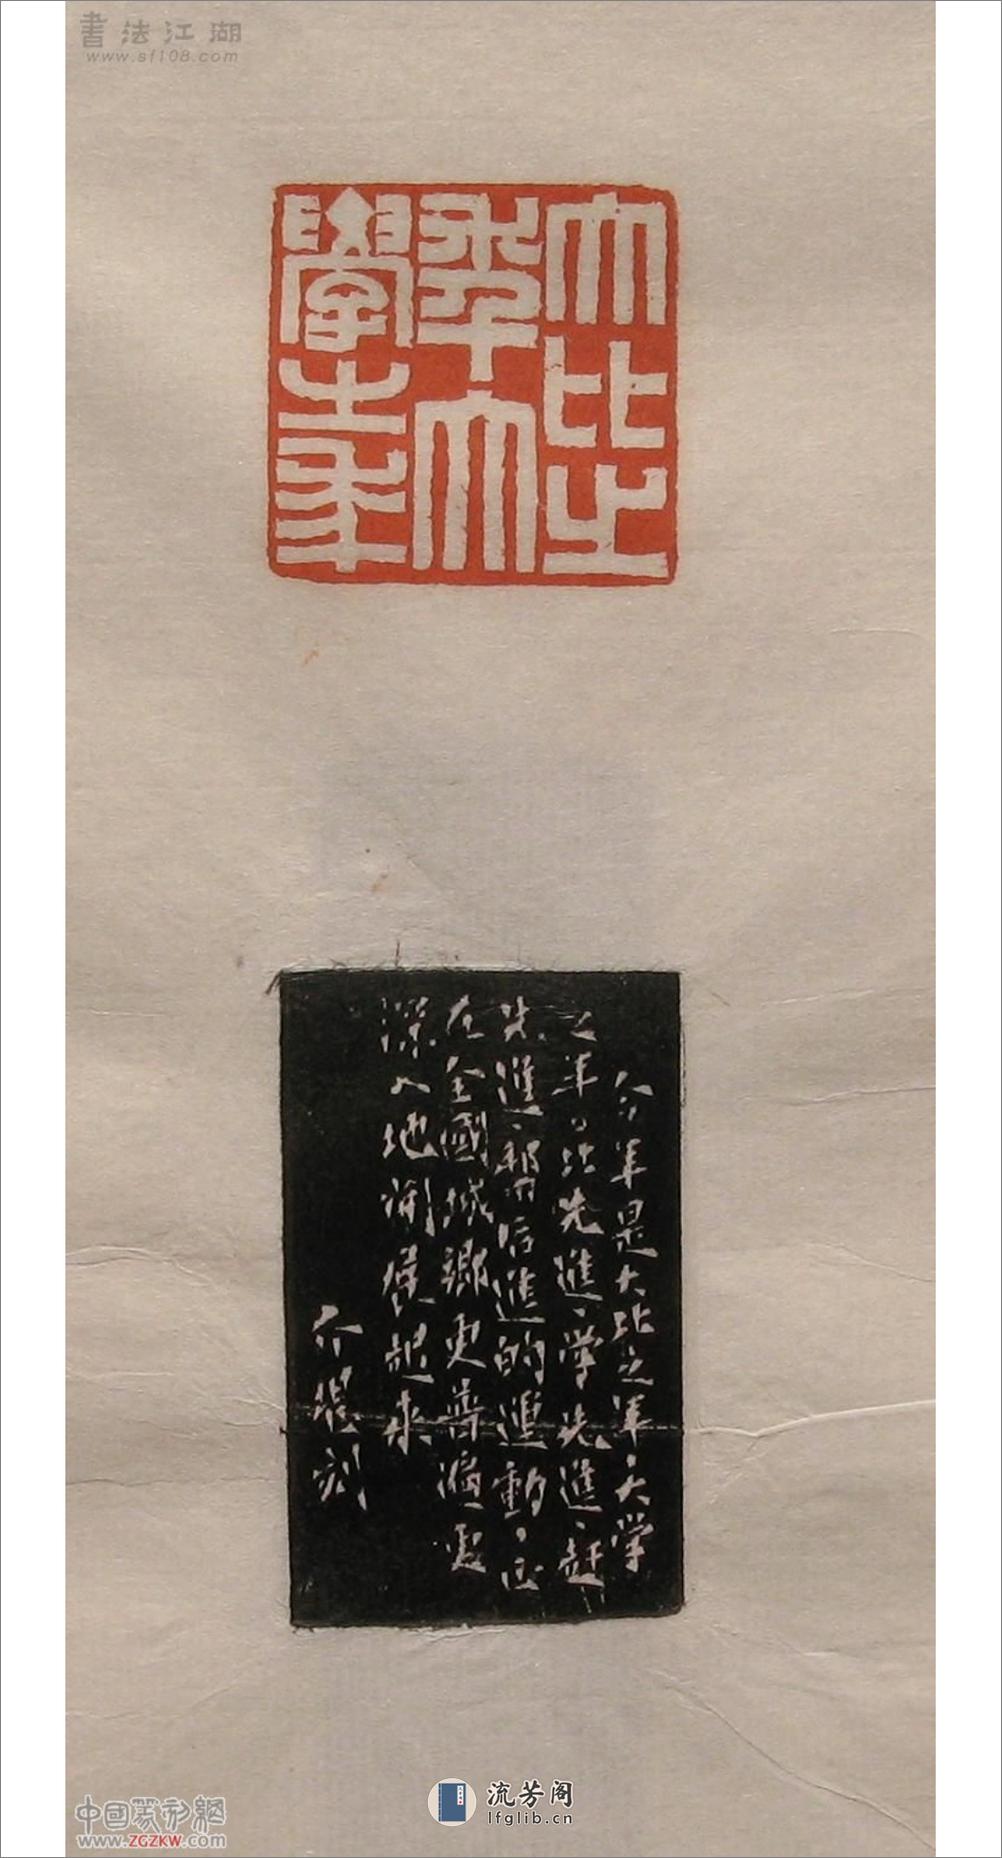 書法江湖
www.sf108.com
大比之
年大
學之年
今年是大比之年大学
之年。比先進、学先進、赶
先進、帮后進的運動、正
在全國城鄉更普遍更
深入地開展起来
介堪刻
流芳阁
lfglib.cn
中國篆刻網
www.ZGZKW.com